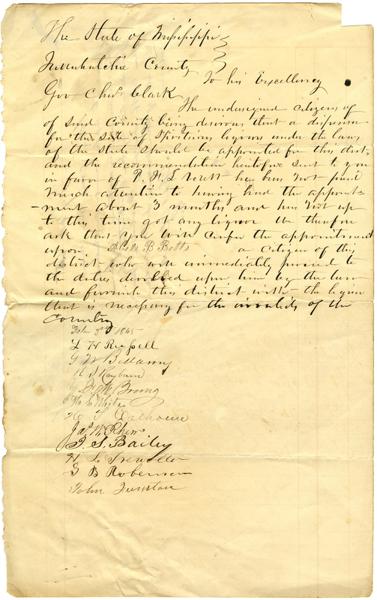 The State of Mississippi
County To his Excellency
Gov Chas. Clark The undersigned citizens of
of said County being desirous that a dispenser
for the sale of Spiritous liquors under the laws
of the State should be appointed for this district
and the recommendation heretofore sent to you
in favor of he has not paid
much attention to having had the appoint-
-ment about 3 months and has not up
to this time got any liquor We therefore
ask that you will confer the appointment
upon B Betts a citizen of this
district who will immediately proceed to
the duties devolved upon him by the law
and furnish this district with the liquor
that is necessary for the invalids of the
Country
Feby 3d 1865
L W Russell
Bellamy
Calhoun
J. S. Bailey
B Roberson
John